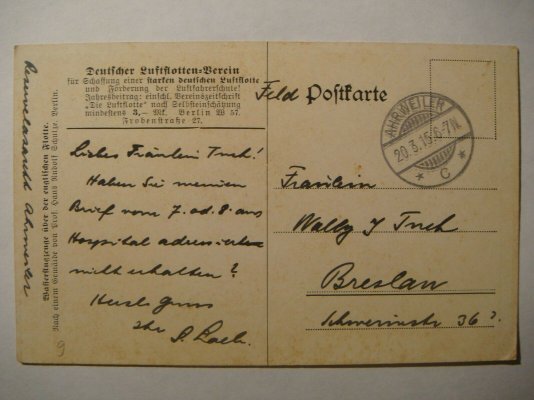 Deutscher Luftflotten-Verein
für Schaffung einer starken deutschen Luftflotte
und Förderung der Luftfahrerschule!
Jahresbeitrag: einschl. Vereinszeitschrift
"Die Luftflotte" nach Selbsteinschätzung
mindestens 3,— Mk. Berlin W 57.
Frobenstraße 27.
Liebes Fräulein Tuch!
Haben Sie meinen
Brief vom 7. od. 8. ans
Hospital adressierten
nicht erhalten?
Herzl. Gruss
Ihr
Feld Postkarte
AHRWEILER
20.3.15.6-7N.
* C *
Fräulein
Wally Tuch
Breslau
Schwerinstr 36
Reservelazarett Ahrweiler
Wasserflugzeuge über der englischen Flotte.
Nach einem Gemälde von Prof. Hans Rudolf Schulze, Berlin.
9